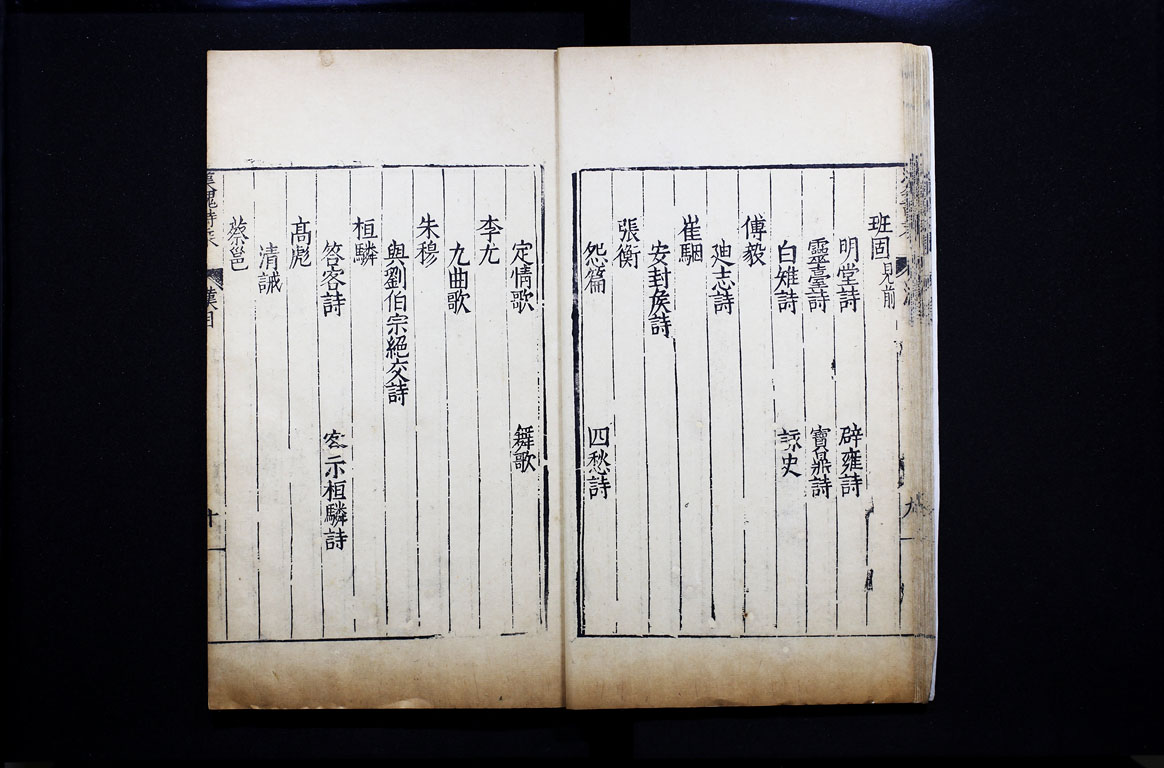 班固見前
明堂詩 辟雍詩
靈臺詩 寶鼎詩
白雉詩 詠史
傅毅
迪志詩
崔駰
安封侯詩
張衡
怨篇 四愁詩
定情歌 舞歌
李尤
九曲歌
朱穆
與劉伯宗絕交詩
桓驎
答客詩 客示桓驎詩
高彪
清誡
蔡邕
漢魏詩乘 漢目 十一